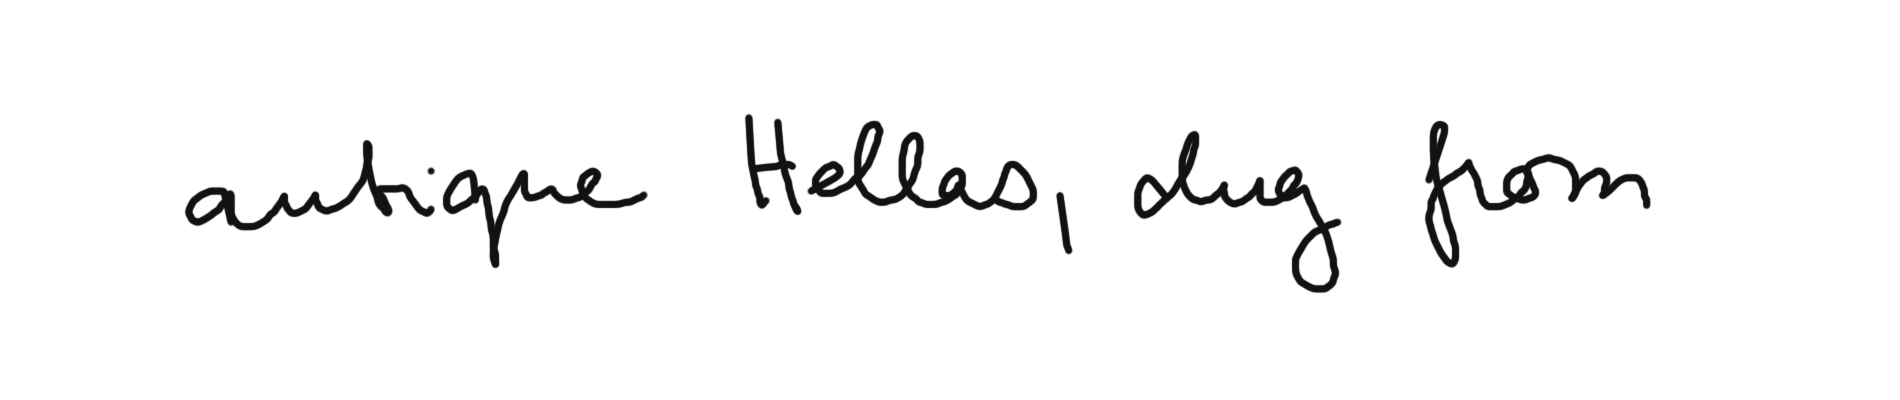 antique Hellas, dug from